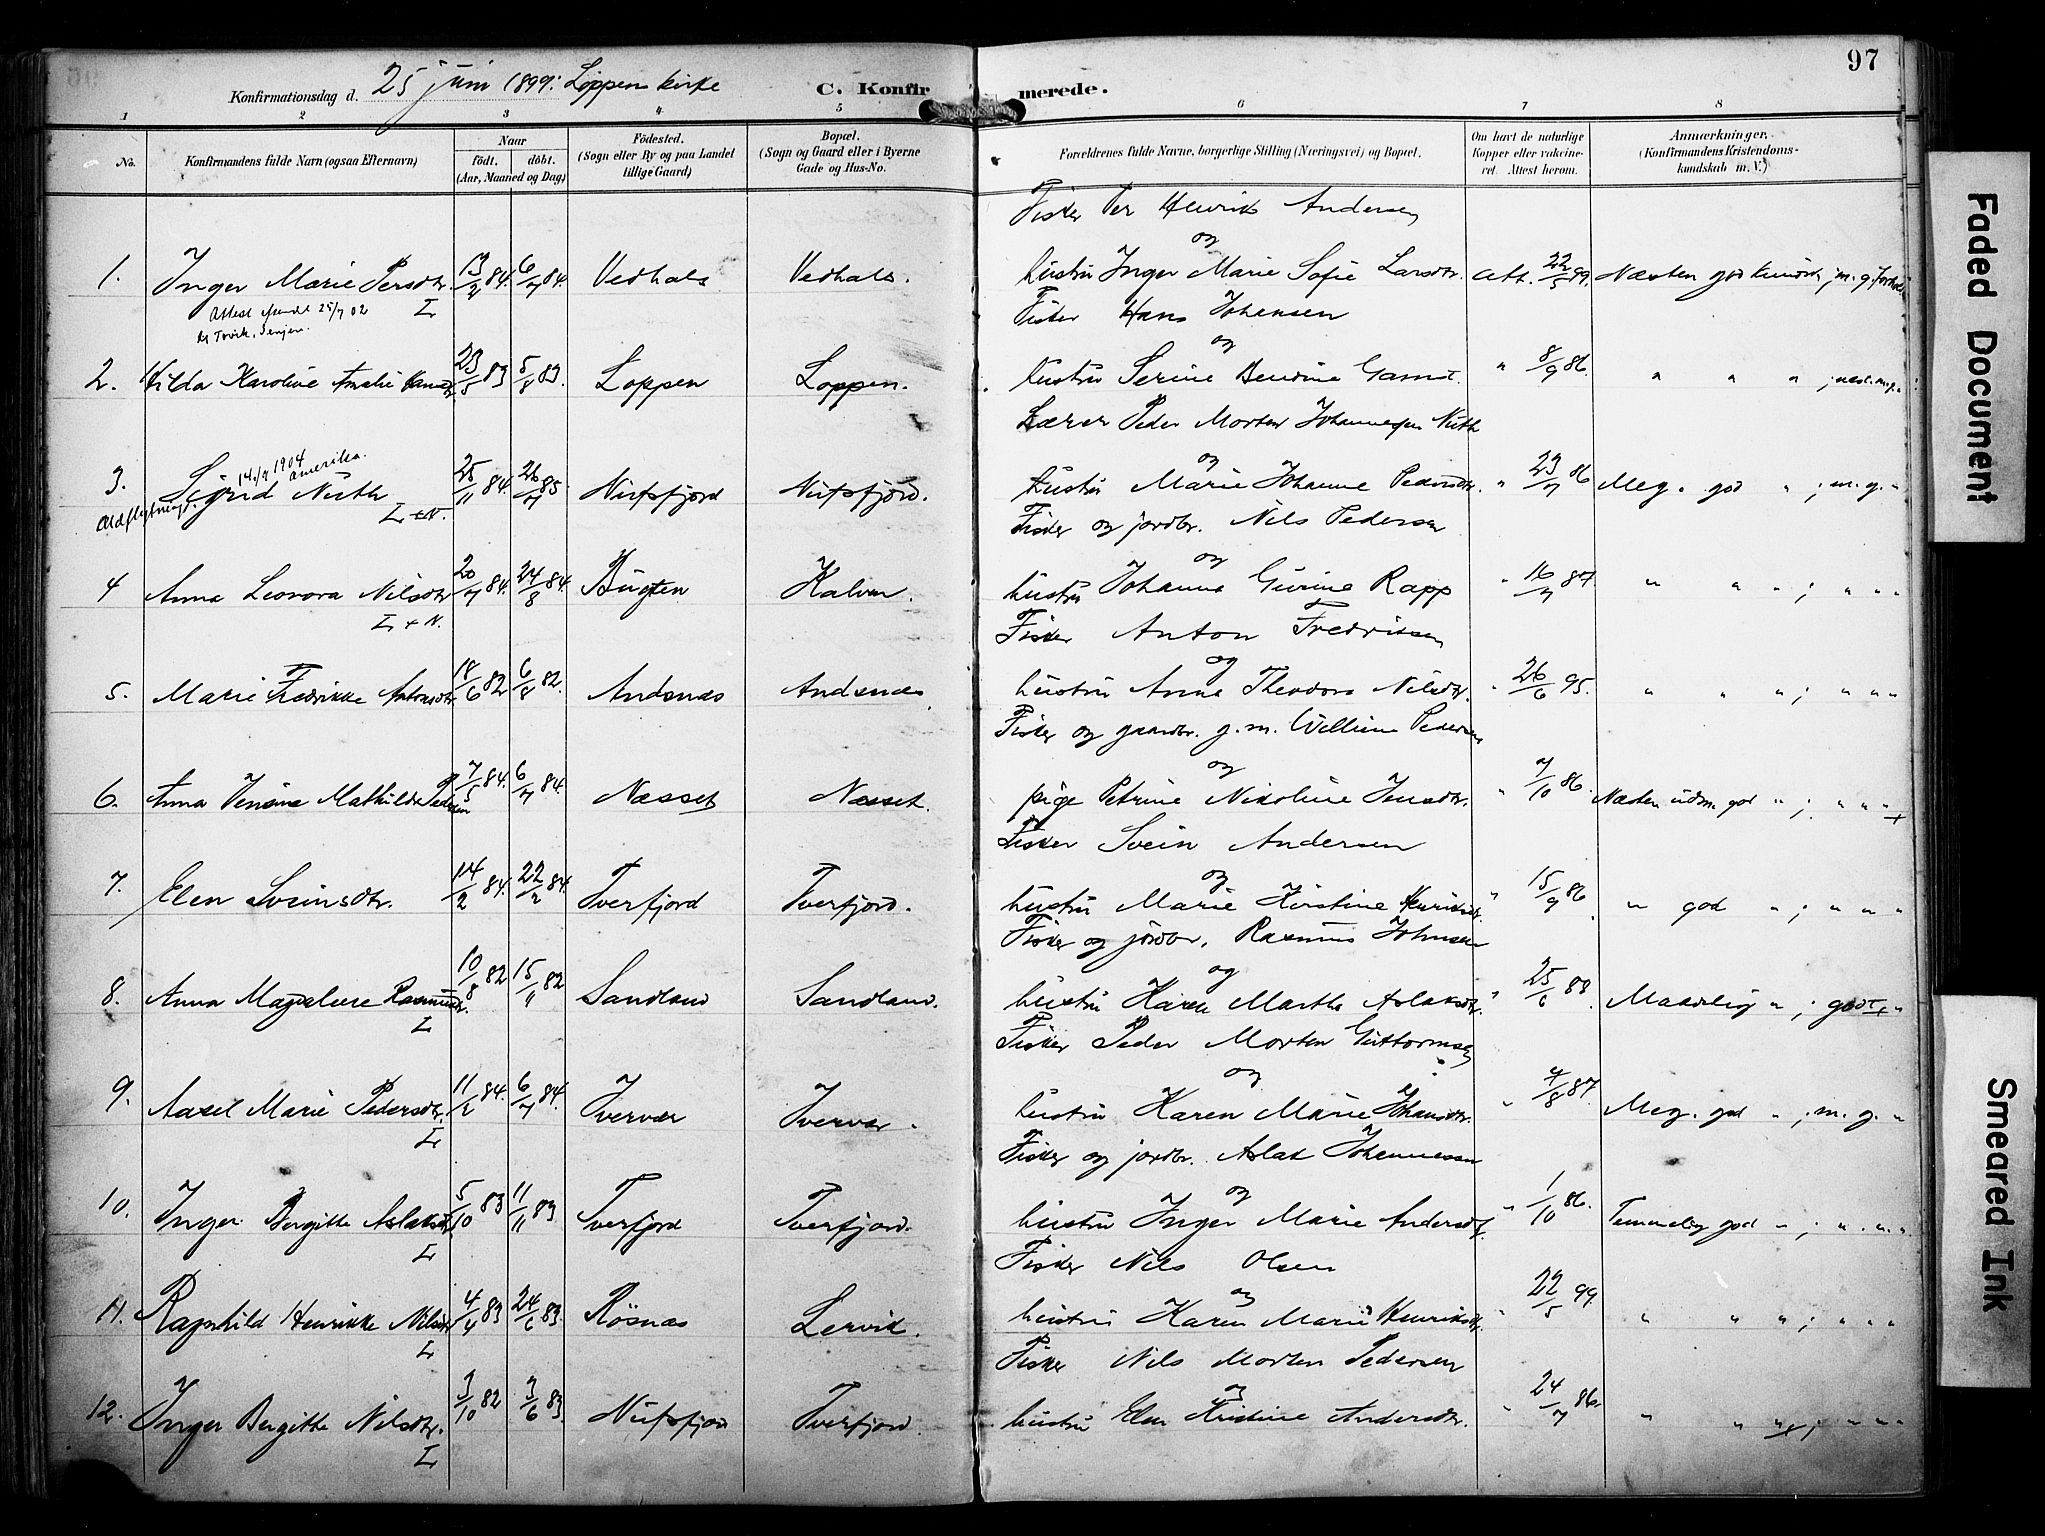 97
Konfirmationsdag d. 25 juni 1899: Loppens kirke C. Konfirmerede.
1 2 3 4 5 6 7 8
No.
Konfirmandens fulde Navn (ogsaa Efternavn)
Naar
født. døbt.
(Aar, Maaned og Dag)
Födested.
(Sogn eller By og paa Landet
tillige Gaard)
Bopæl.
(Sogn og Gaard eller i Byerne
Gade og Hus-No.
Forældrenes fulde Navne, borgerlige Stilling (Næringsvei) og Bopæl.
Om havt de naturlige
Kopper eller vakcine-
ret. Attest herom.
Anmærkninger.
(Konfirmandens Kristendoms-
kundskab m. V.)
Fisker Per Henrik Andersen
og
1. Inger Marie Persdtr. 13/2 84. 6/7 84. Vedhals Vedhals. hustru Inger Marie Sofie Larsdtr. Att. 22/5 99. Næsten god kundsk.; m. g. forhold
Attest 25/7 02 L
Torvik, Senjen.
Fisker Hans Johansen
og
2. Hilda Karoline Amalie 23/5 83 5/8 83. Loppen Loppen. hustru Serine Bendine Gamst. " 8/9 86. " " " ; næst. m. g. "
Lærer Peder Morten Johannesen Nuth
14/7 1904 Amerika.
og
3. Sigrid Nuth 25/11 84. 26/7 85 Nufsfjord Nufsfjord. hustru Marie Johanne Pedersdtr. " 23/7 86 Meg. god " ; m. g. "
Udflytning. L + N.
Fisker og jordbr. Nils Pedersen
og
4 Anna Leonora Nilsdtr 20/7 84. 24/8 84. Bugten Kalven. hustru Johanna Gurine Rapp " 16/7 87 " " " ; " " "
L + N.
Fisker Anton Fredriksen
og
5. Marie Fredrikke Antonsdtr. 18/6 82 6/8 82. Andsnæs Andsnæs. hustru Anna Theodora Nilsdtr. " 26/6 95. " " " ; " " "
Fisker og gaardbr. g. m. Pedersen
og
6. Anna Jensine Mathilde Pedersen 7/5 84. 6/7 84. Næsset Næsset. pige Petrine Nikoline Jensdtr. " 7/10 86. Næsten udm. god " ; " " "
Fisker Svein Andersen
og
7. Elen Sveinsdtr. 14/2 84. 22/2 84. Tverfjord Tverfjord. hustru Marie Kirstine Henriksdtr. " 15/9 86. " god " ; " " "
Fisker og jordbr. Rasmus Johnsen
og
8. Anna Magdalene Rasmusdtr. 10/8 82 15/11 82 Sandland Sandland. hustru Karen Martha Aslaksdtr. " 25/6 88. Maadelig " ; godt "
L
Fisker Peder Morten Guttormsen
og
9. Aasel Marie Pedersdtr. 11/2 84. 6/7 84. Ivervær Ivervær. hustru Karen Marie Johansdtr. " 4/8 87. Meg. god " ; m. g. "
L
Fisker og jordbr. Aslak Johannesen
og
10. Inger Bergitte Aslaksdtr. 5/10 83 11/11 83 Tverfjord Tverfjord. hustru Inger Marie Andersdtr. " 1/10 86. Temmelig god " ; " " "
L
Fisker Nils Olsen
og
11. Ragnhild Henrikke Nilsdtr 4/4 83 24/6 83. Røsnæs Lervik. hustru Karen Marie Henriksdtr. " 22/5 99. " " " ; " " "
L
Fisker Nils Morten Pedersen
og
12. Inger Bergitte Nilsdtr. 3/10 82 3/6 83. Nufsfjord Tverfjord. hustru Elen Kristine Andersdtr. " 24/7 86. " " " ; " " "
L
Faded Document
Smeared Ink